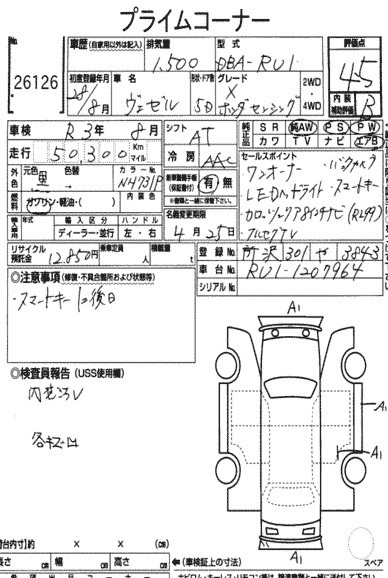 プライムコーナー
26126
車歴 (自家用以外は記入) 排気量 型式 評価点
1,500 DBA-RU1 4.5
初度登録年月 車名 ドア 形状 グレード 2WD
28/8月 ヴェゼル 5D X ホンダセンシング 4WD
内装 補助評価 B
車検 R3年 8月 シフト AT 純正品 SR 純AW PS PW
カワ TV ナビ エアB
走行 50,300 Km マイル 冷房 AAC セールスポイント
外色 元色 黒 色替 カラーNo. NH731P 新車整備手帳 (保証書付) 有 無 ワンオーナー・バックカメラ
LEDヘッドライト スマートキー
燃料 ガソリン・軽油・( ) 内装色 名義変更期限
輸入車 輸入区分 ハンドル 4月25日 フルセグTV
ディーラー・並行 左・右
リサイクル預託金 12,850円 乗車定員 人 積載量 t 登録No. 所沢301や3843
車台No. RU1-1207964
シリアルNo.
◎注意事項 (修復・不具合箇所および状態等)
・スマートキー1ヶ後日
◎検査員報告 (USS使用欄)
A1
A1
A1
A1
荷台内寸) 約 × × (cm)
長さ cm 幅 cm 高さ cm ←(車検証上の寸法)
スペア